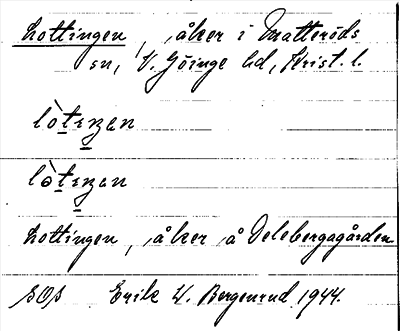 Lottingen, åker i Matteröds
sn, V. Göinge hd, Krist. l.
lòtɛŋan
lòtɛŋan
Lottingen, åker å Delebergagården
SOS Erik W. Bergenrud 1944.